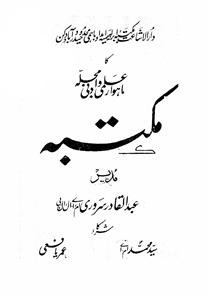 دارالاشاعت مکتبہ ابراہیمیہ امداد باہمی محدود حیدرآباد دکن
کا
ماہوار علمی و ادبی مجلہ
مکتبہ
مدیر
عبدالقادر سروری ایم اے ال ال بی
شرکار
سید محمد ام اے
عمر یافعی